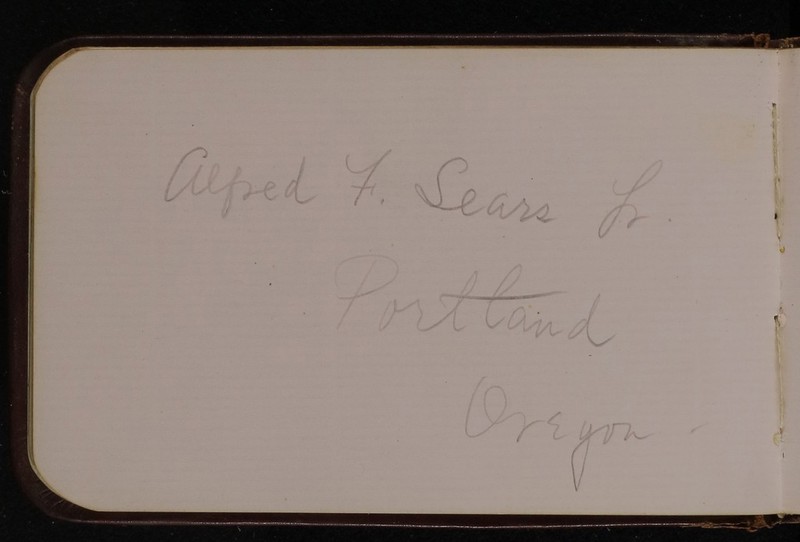 Alfred F. Sears Jr.
Portland
Oregon -